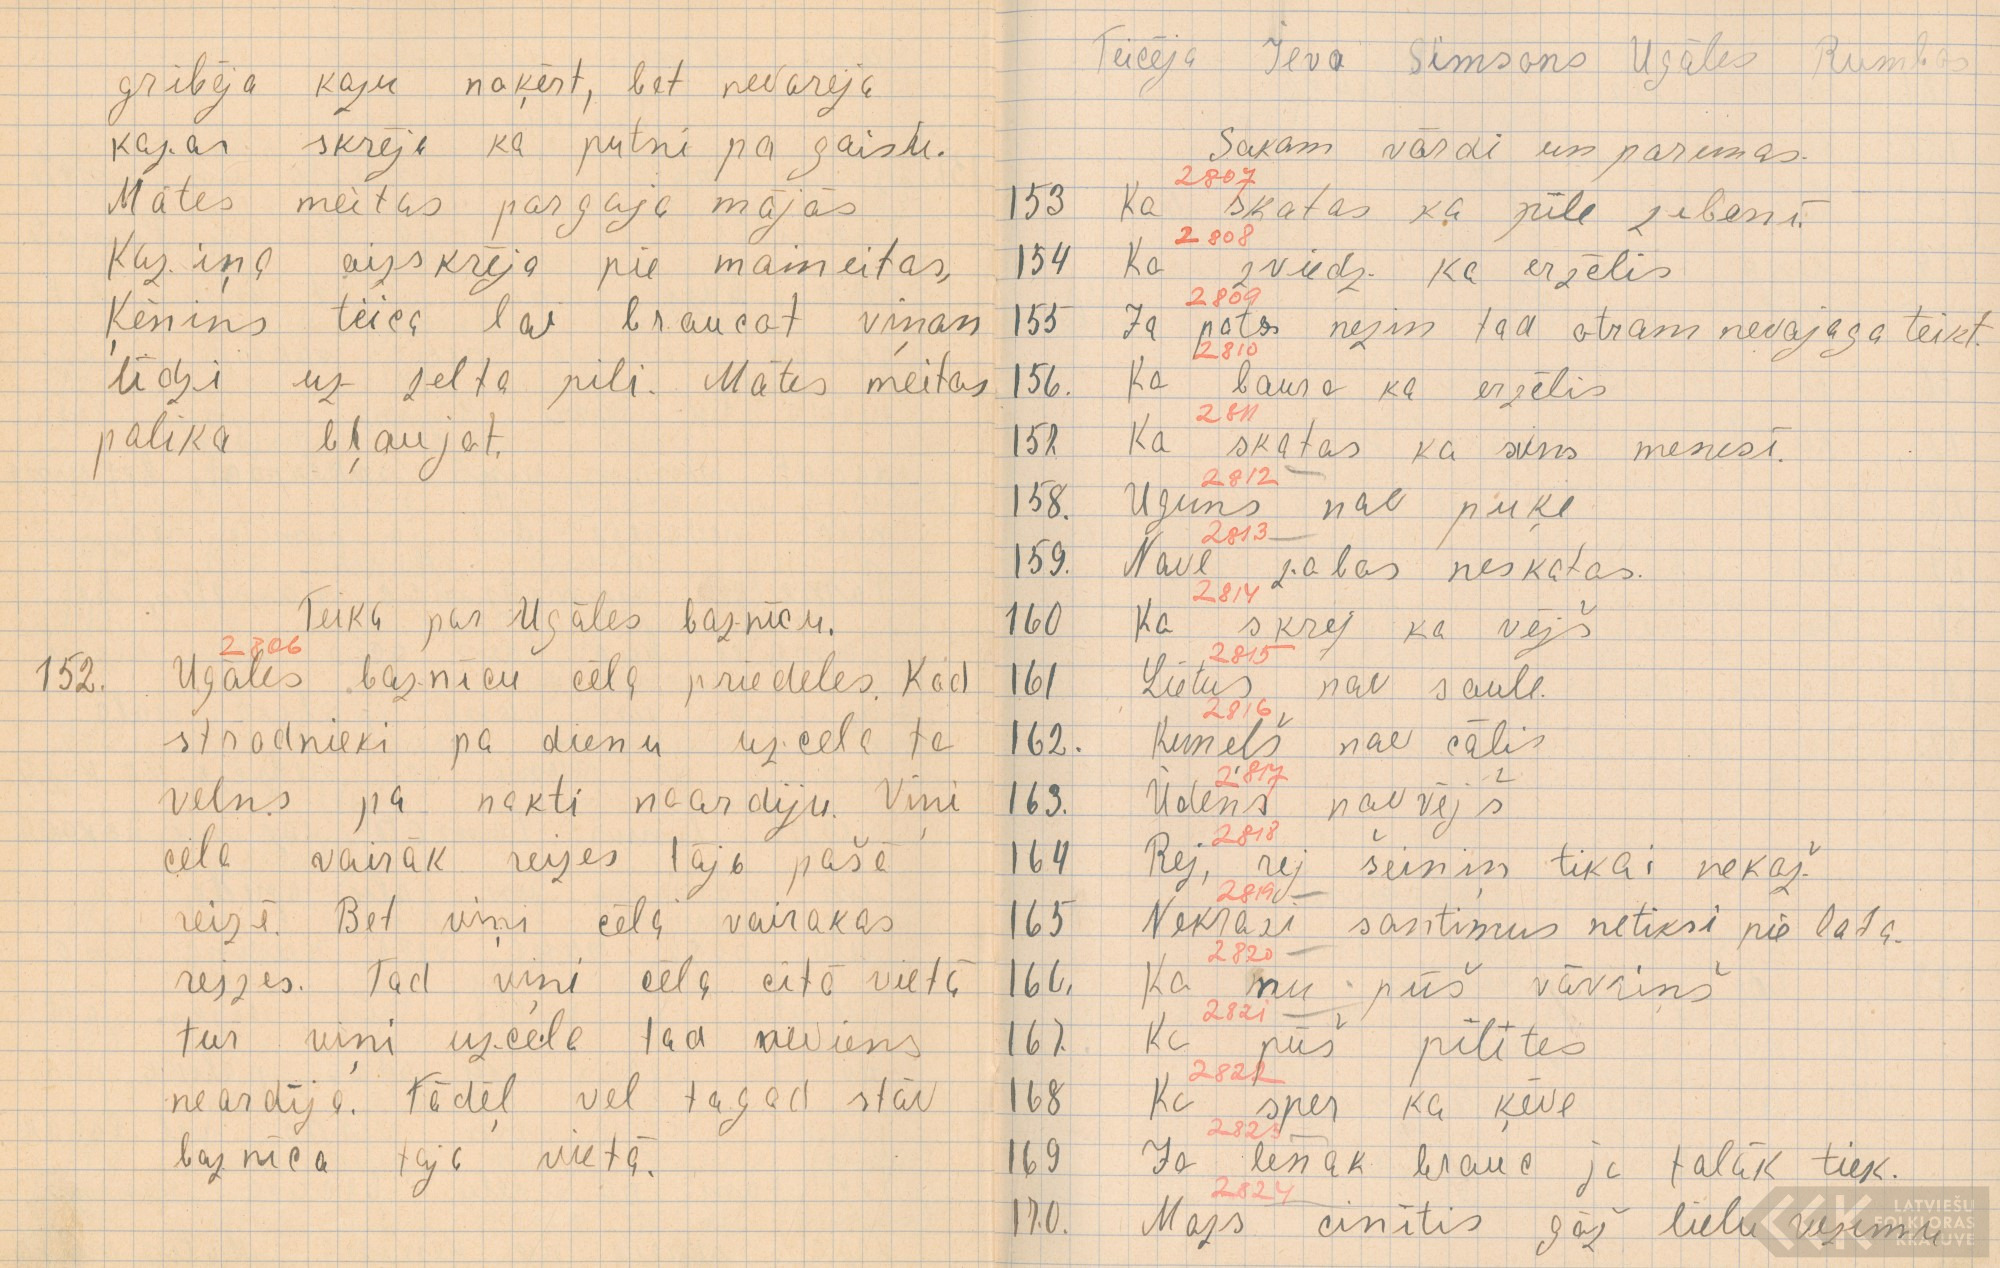 gribēja kazu noķērt, bet nevarēja
kazas skrēja ka putni pa gaisu.
Mātes meitas pārgāja mājās
Kaziņa aizskrēja pie mameitas,
Ķēniņs teica lai braucot viņam
līdzi uz zelta pili. Mātes meitas
palika bļaujot.
Teika par Ugāles baznīcu.
2806
152. Ugāles baznīcu cēla priedeles. Kad
strādnieki pa dienu uzcēla to
velns pa nakti noardīju. Viņi
cēla vairāk reizes tājo pašā
reizē. Bet viņi cēla vairakas
reizes. Tad viņi cēla citā vietā
tur viņi uzcēla tad neviens
neardīja. Tādēļ vel tagad stāv
baznīca tajā vietā.
Teicēja Ieva Simsons Ugāles Rumbas
Sakam vārdi un parunas.
2807
153 Ka skatas ka pīle zibenī.
2808
154 Ka zviedz ka erzēlis
2809
155 Ja pats nezin tad otram nevajaga teikt.
2810
156. Ka baura ka erzēlis
2811
157 Ka skatas ka suns menesī.
2812
158. Uguns nav puķe
2813
159. Nave zobos neskatas.
2814
160 Ka skrej ka vējš
2815
161 Lietus nav saule.
2816
162. Kumeļš nav cālis
2817
163. Ūdens nav vējš
2818
164 Rej, rej šeiniņ tikai nekož
2819
165 Nekrāsi santimus netiksi pie lata.
2820
166. Ka nu pūš vāvriņš
2821
167. Ka pūš pīlītes
2822
168 Ka sper ka ķēve
2823
169 Jo lēnāk brauc jo tālāk tiek.
2824
170. Mazs cinītis gāž lielu vezumu
LATVIEŠU
FOLKLORAS
KRĀTUVE